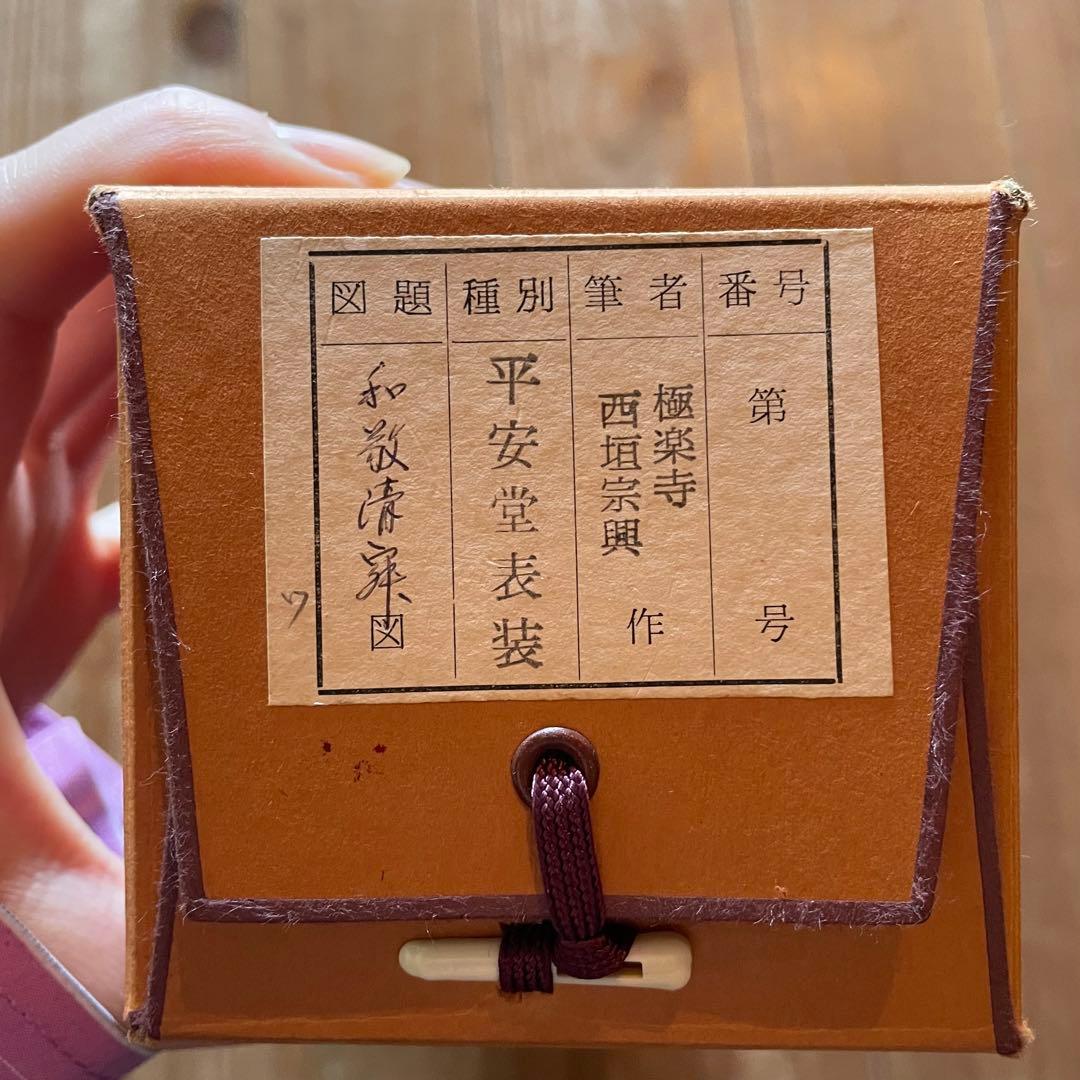 番号
第 号
筆者
極楽寺
西垣宗興
作
種別
平安堂表装
図題
和敬清寂
図
ワ